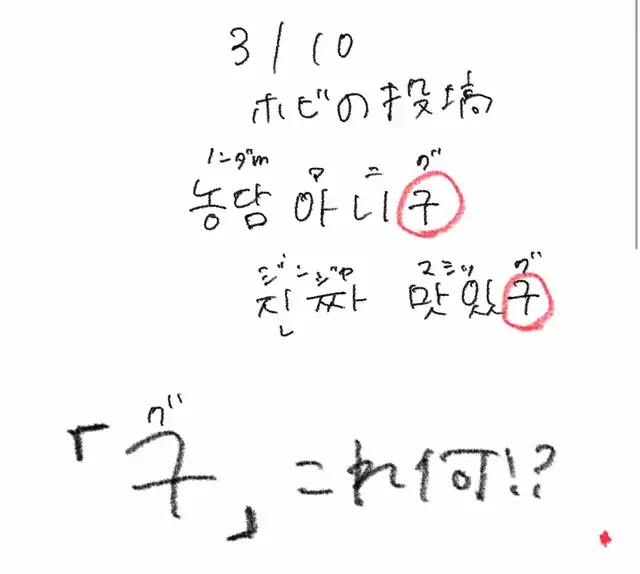 3/10
ホビの投稿
ノーダm アニグ
농담 아니구
ジンジャ マシッグ
진짜 맛있구
グ
「구」これ何!?